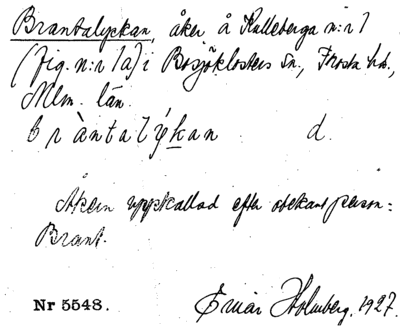 Brantalyckan, åker å Kulleberga n:r 1
(fig. n:r 1a) i Bosjöklosters sn., Frosta hd.,
Mlm. län.
bràntalýkan d.
Åkern uppkallad efter obekant person:
Brant.
Nr 5548. Einar Holmberg. 1927.